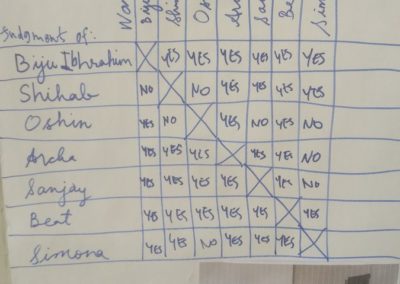 Judgment of: Wan Bij Shi Os Ar San Be Sim
Biju Ibhrahim YES YES YES YES YES YES
Shihab NO NO YES YES YES YES
Oshin YES NO YES NO YES NO
Archa YES YES YES YES YES NO
Sanjay YES YES YES YES YES NO
Beat YES YES YES YES YES YES
Simona YES YES NO YES YES YES